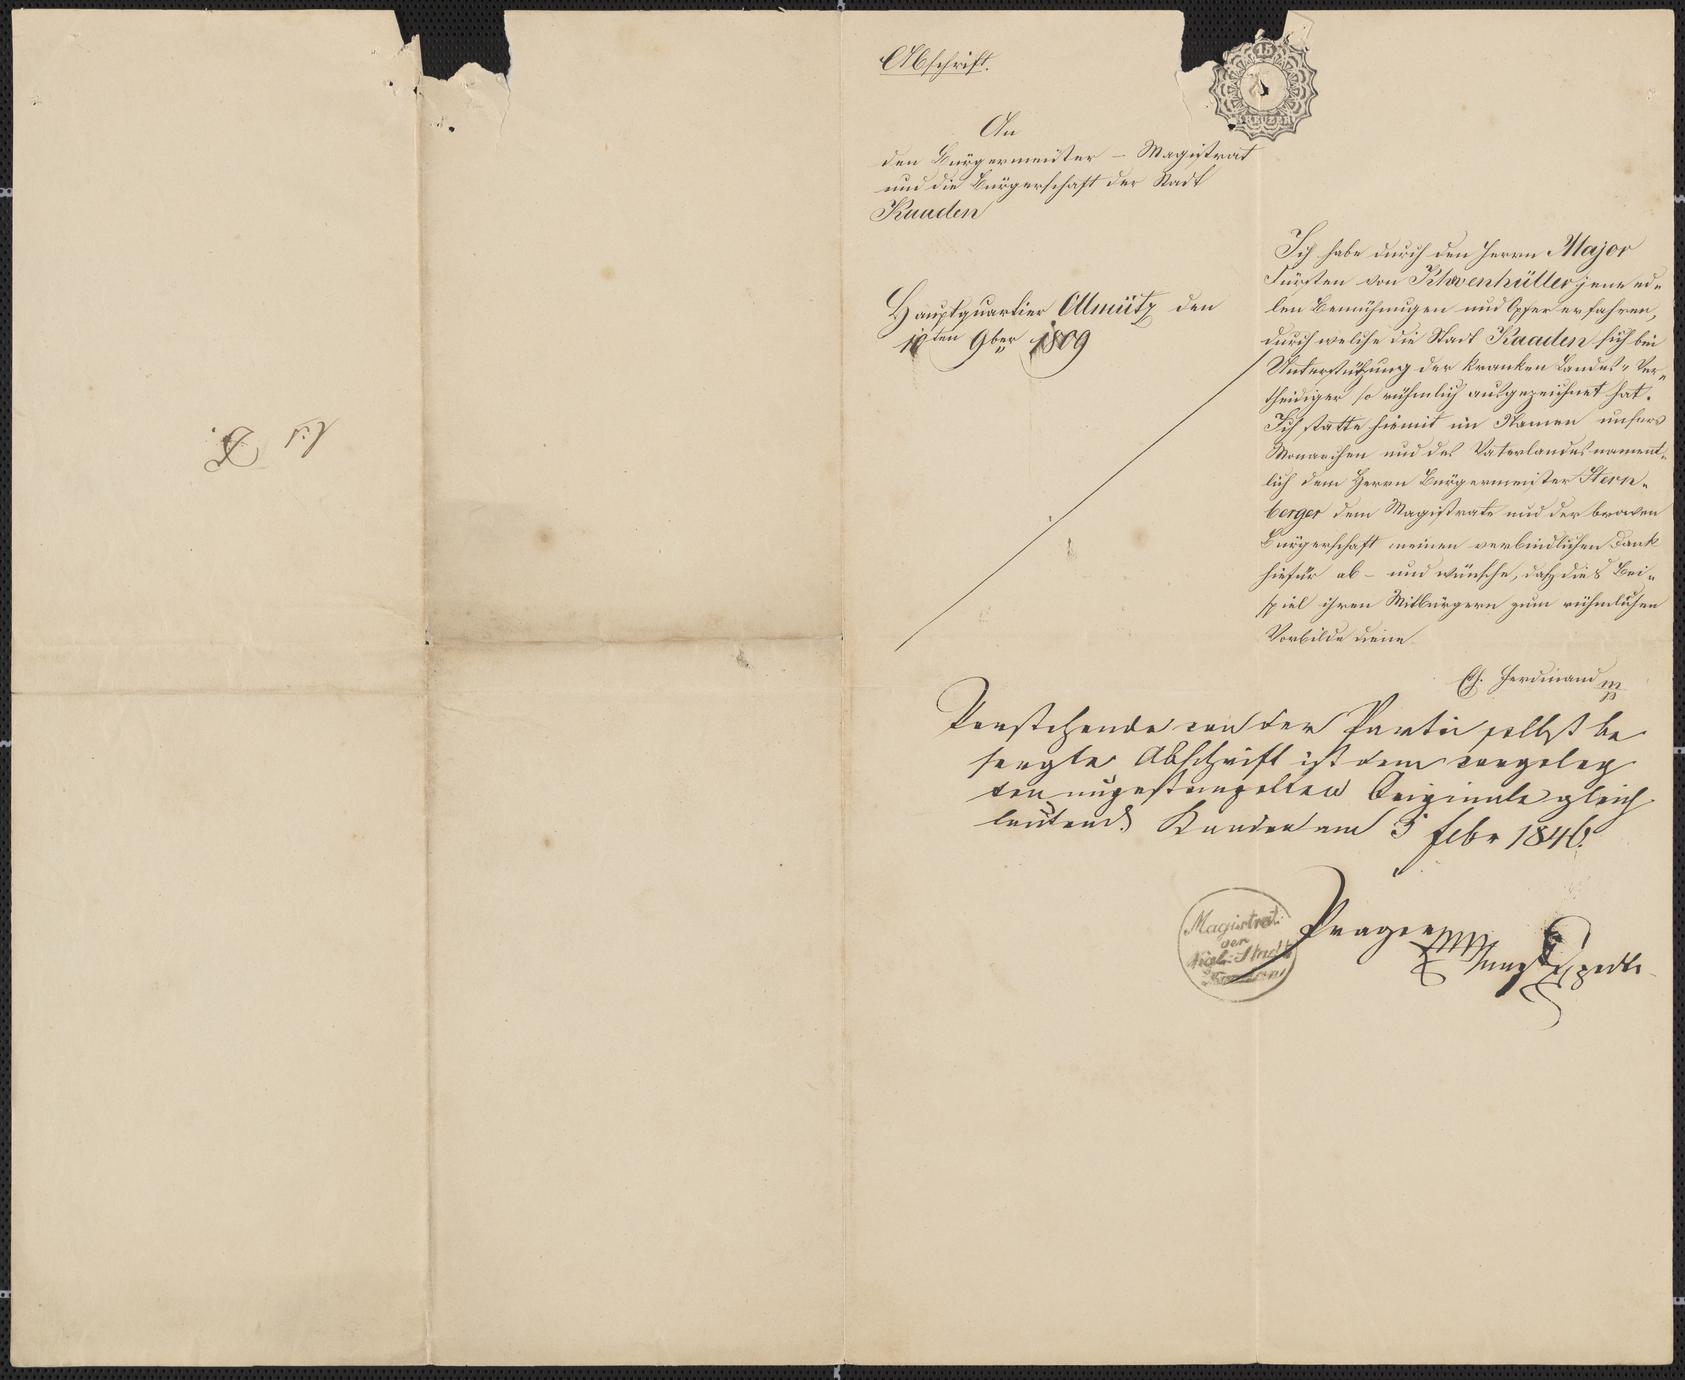 Abschrift.
15
KREUZER
An
den Bürgermeister – Magistrat
und die Bürgerschaft der Stadt
Kaaden
Hauptquartier Ollmütz den
ten 9ber 1809
Ich habe durch den Herrn Major
Fürsten von Khevenhüller jene ed-
len Bemühungen und Opfer erfahren,
durch welche die Stadt Kaaden sich bei
Unterstützung der kranken Landes-Ver-
theidiger so rühmlich ausgezeichnet hat.
Ich statte hiemit im Namen unsers
Monarchen und des Vaterlandes nament-
lich dem Herrn Bürgermeister Stern-
berger dem Magistrate und der braven
Bürgerschaft meinen verbindlichen Dank
hiefür ab – und wünsche, daß dies Bei-
spiel ihren Mitbürgern zum rühmlichen
Vorbilde diene.
Eh. Ferdinand mp
Vorstehende von der Partei selbst be
sorgte Abschrift ist dem vorgeleg
ten ungestempelten Originale gleich
lautend. Kaaden am 5 Febr 1846.
Magistrat
der
Stadt
Kaaden
Prager